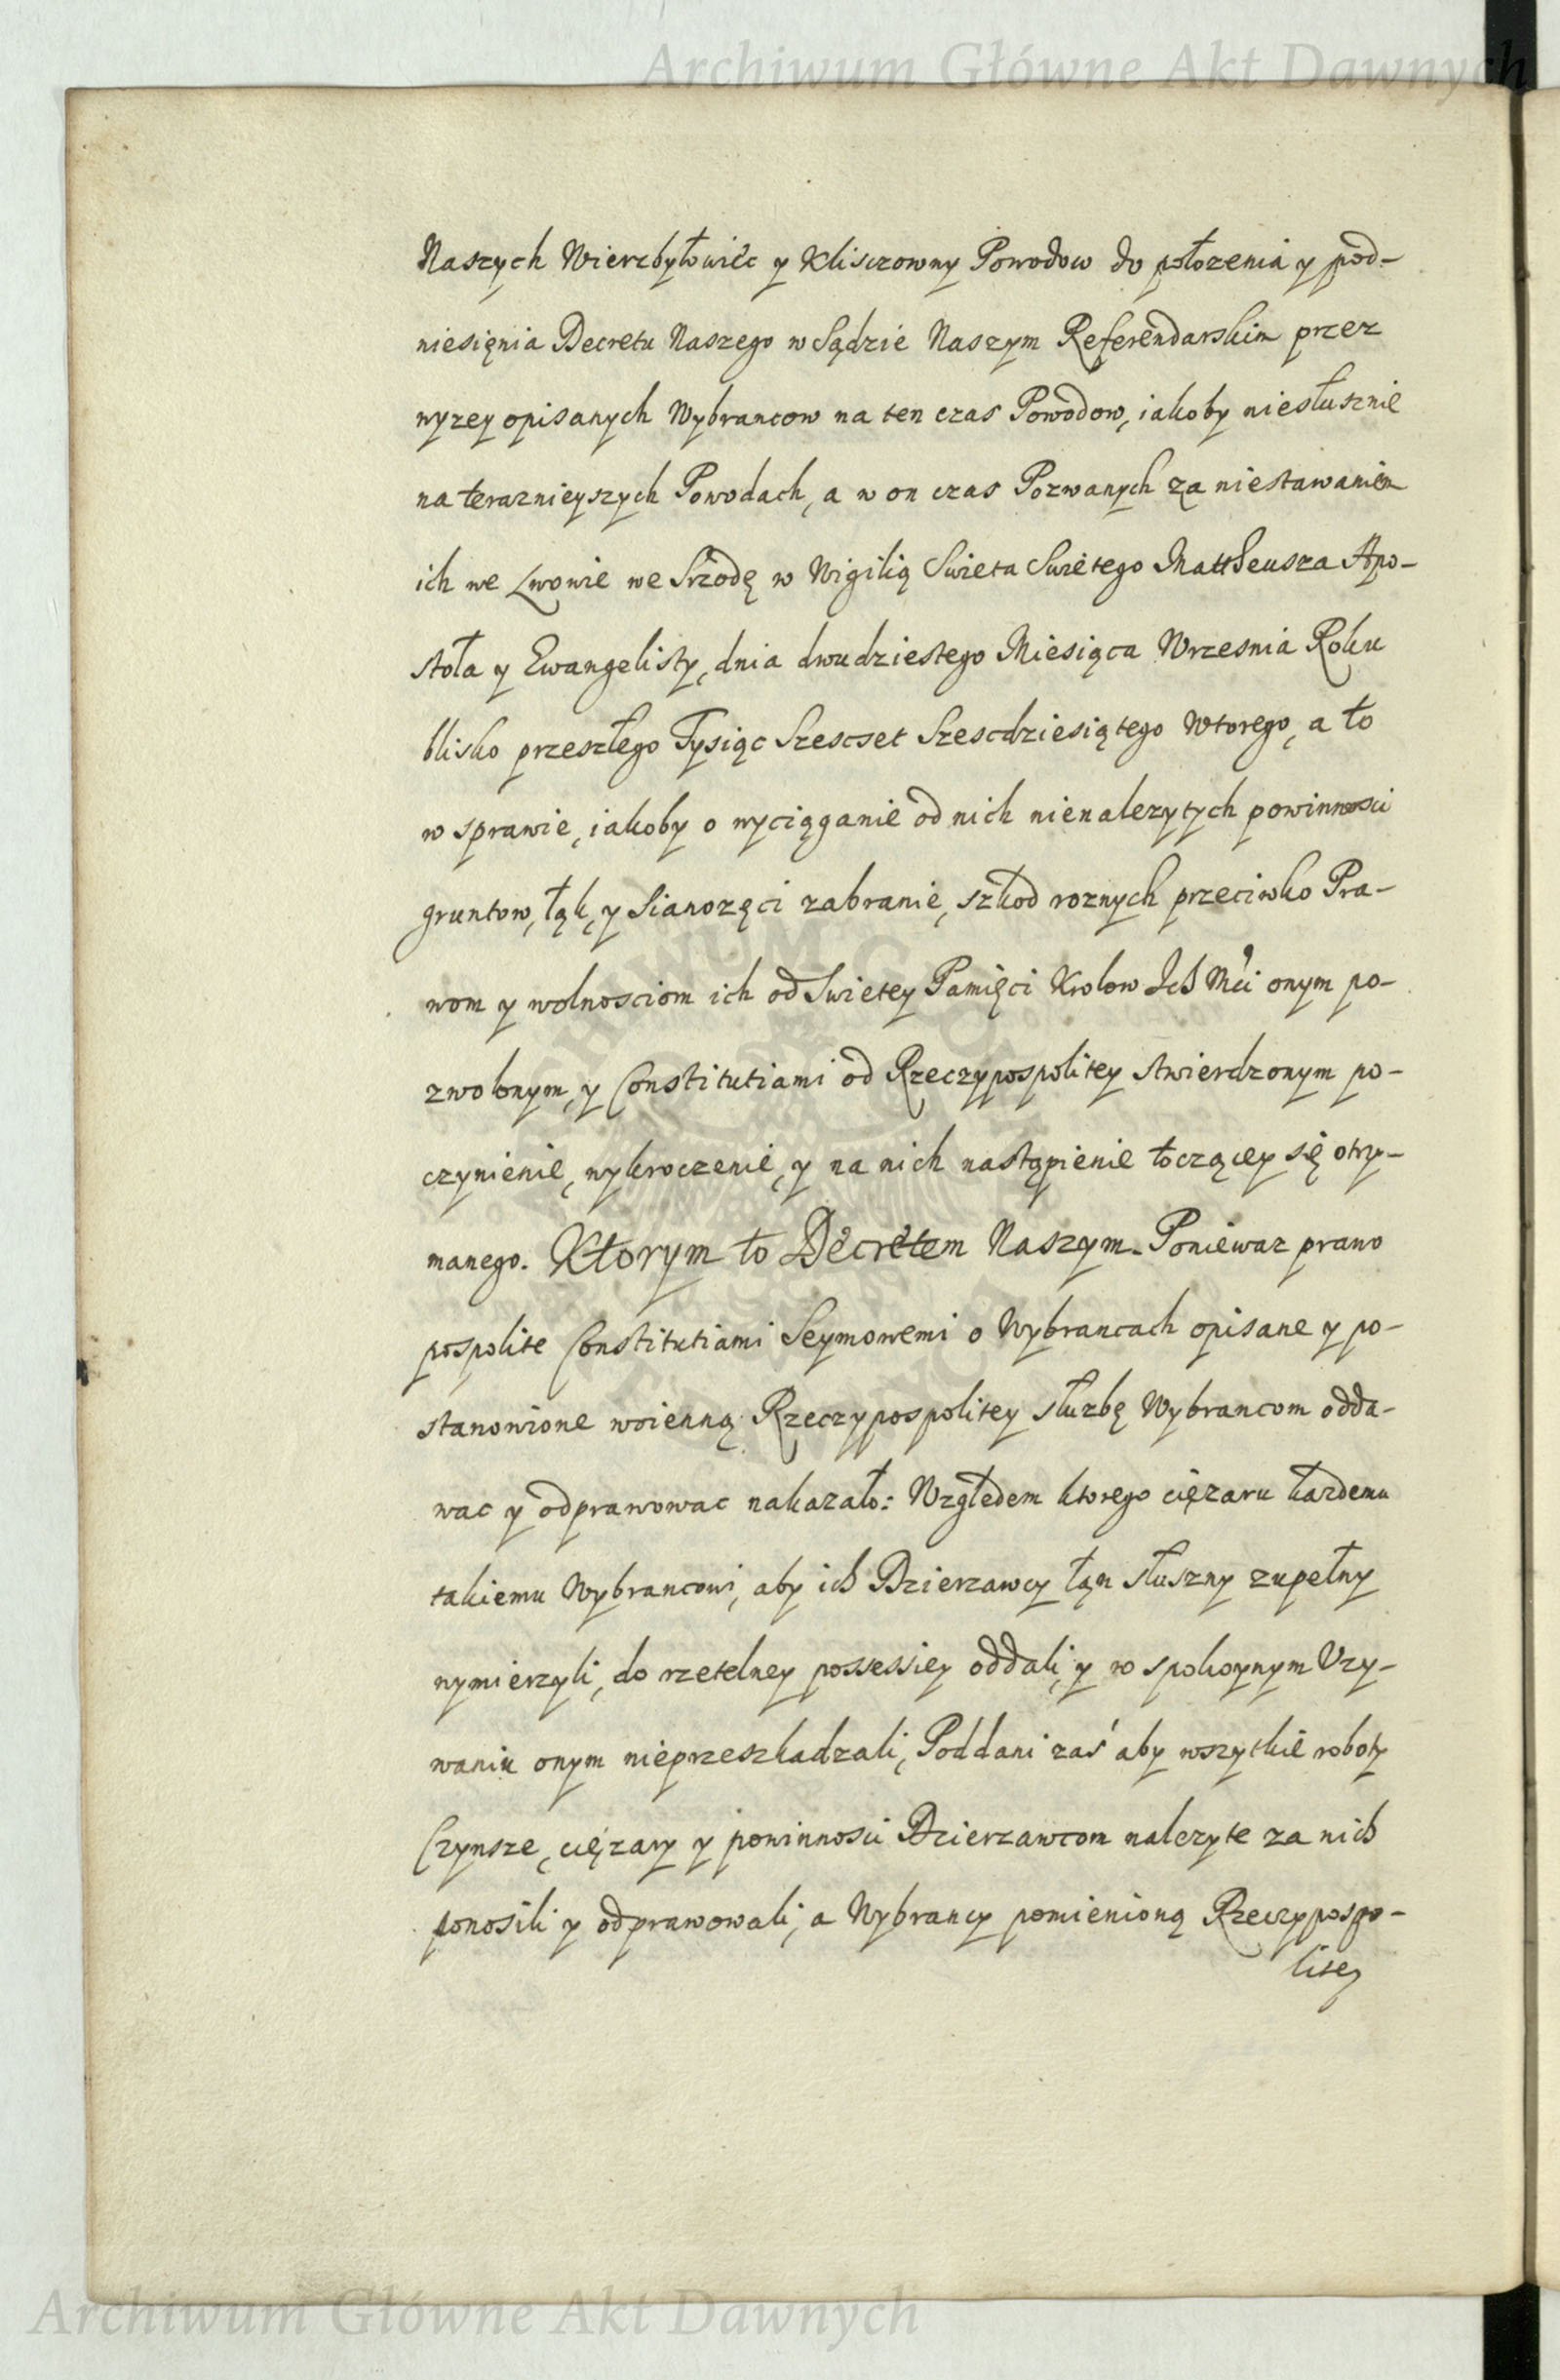 Archiwum Główne Akt Dawnych
Naszych Wierzbyłowiec y Kliszowny Powodow do położenia y pod-
niesięnia Decretu Naszego w Sądzie Naszym Referendarskim przez
wyzey opisanych Wybrancow na ten czas Powodow, iakoby niesłusznie
na teraznieyszych Powodach, a w on czas Pozwanych za niestawaniem
ich we Lwowie we Srzodę w Wigilią Swieta Swietego Mattheusza Apo-
stoła y Ewangelisty, dnia dwudziestego Miesiąca Wrzesnia Roku
blisko przeszłego Tysiąc Szescset Szescdziesiątego Wtorego, a to
w sprawie, iakoby o wyciąganie od nich nienalezytych powinnosci
gruntow, łąk, y Sianozęci zabranie, szkod roznych przeciwko Pra-
wom y wolnosciom ich od Swietey Pamięci Krolow Ich Mci onym po-
zwolonym, y Constitutiami od Rzeczypospolitey stwierdzonym po-
czynienie, wykroczenie, y na nich nastąpienie toczącey się otrzy-
manego. Ktorym to Decretem Naszym. Poniewaz prawo
pospolite Constitutiami Seymowemi o Wybrancach opisane y po-
stanowione woienną Rzeczypospolitey słuzbę Wybrancom odda-
wac y odprawowac nakazało: Względem ktorego ciężaru kazdemu
takiemu Wybrancowi, aby ich Dzierzawcy łąn słuszny zupełny
wymierzyli, do rzetelney possessiey oddali, y w spokoynym Uzy-
waniu onym nieprzeszkadzali, Poddani zaś aby wszytkie roboty
Czynsze, ciężary y powinnosci Dzierzawcom nalezyte za nich
ponosili y odprawowali, a Wybrancy pomienioną Rzeczypospo-
litey
Archiwum Główne Akt Dawnych